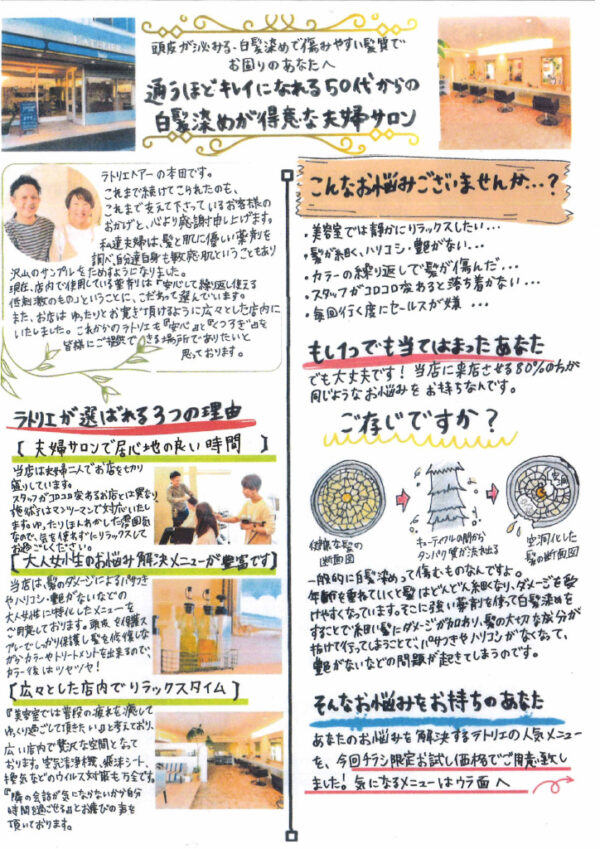 L'ATELIER
頭皮が泌みる・白髪染めで傷みやすい髪質で
お困りのあなたへ
通うほどキレイになれる50代からの
白髪染めが得意な夫婦サロン
ラトリエヘアーの本田です。
これまで続けてこられたのも、
これまで支えて下さっているお客様の
おかげと、心より感謝申し上げます。
私達夫婦は、髪と肌に優しい薬剤を
調べ、自分達自身も敏感肌ということもあり
沢山のサンプルをためすようになりました。
現在、店内で使用している薬剤は『安心して繰り返し使える
低刺激のもの』ということに、こだわって選んでいます。
また、お店はゆったりとお寛ぎ頂けるように広々とした店内に
いたしました。これからのラトリエを『安心』と『くつろぎ』を
皆様にご提供できる場所でありたいと
思っております。
ラトリエが選ばれる3つの理由
[夫婦サロンで居心地の良い時間]
当店は夫婦二人でお店を切り
盛りしています。
スタッフがコロコロ変わるお店とは異なり
施術はマンツーマンで対応いたし
ます。ゆったりほんわかした雰囲気
なので、気を使わずにリラックスして
お過ごしください。
[大人女性のお悩み解決メニューが豊富です]
当店は、髪のダメージによるパサつき
やハリコシ・艶がないなどの
大人女性に特化したメニューを
ご用意しております。頭皮を保護ス
プレーでしっかり保護し髪を修復しな
がらカラーやトリートメントを出来るので、
カラー後はツヤツヤ!
[広々とした店内でリラックスタイム]
『美容室では普段の疲れを癒して
ゆっくり過ごして頂きたい』と考えており、
広い店内で贅沢な空間となって
おります。空気清浄機、飛沫シート、
換気などのウイルス対策も万全です。
『隣の会話が気にならないから自分
時間を過ごせる』とお喜びの声を
頂いております。
こんなお悩みございませんか…?
・美容室では静かにリラックスしたい…
・髪が細く、ハリコシ・艶がない…
・カラーの繰り返しで髪が傷んだ…
・スタッフがコロコロ変わると落ち着かない…
・毎回行く度にセールスが嫌…
もし1つでも当てはまったあなた
でも大丈夫です!当店に来店させる80%の方が
同じようなお悩みをお持ちなんです。
ご存じですか?
健康な髪の
断面図
キューティクルの間から
タンパク質が流れ出る
空洞
空洞化した
髪の断面図
一般的に白髪染めって傷むものなんですよ。
年齢を重ねていくと髪はどんどん細くなり、ダメージを受
けやすくなっています。そこに強い薬剤を使って白髪染めを
することで細い髪にダメージが加わり、髪の大切な成分が
抜けて行ってしまうことで、パサつきやハリコシがなくなって、
艶がないなどの問題が起きてしまうのです。
そんなお悩みをお持ちのあなた
あなたのお悩みを解決するラトリエの人気メニュー
を、今回チラシ限定お試し価格でご用意致し
ました!気になるメニューはウラ面へ